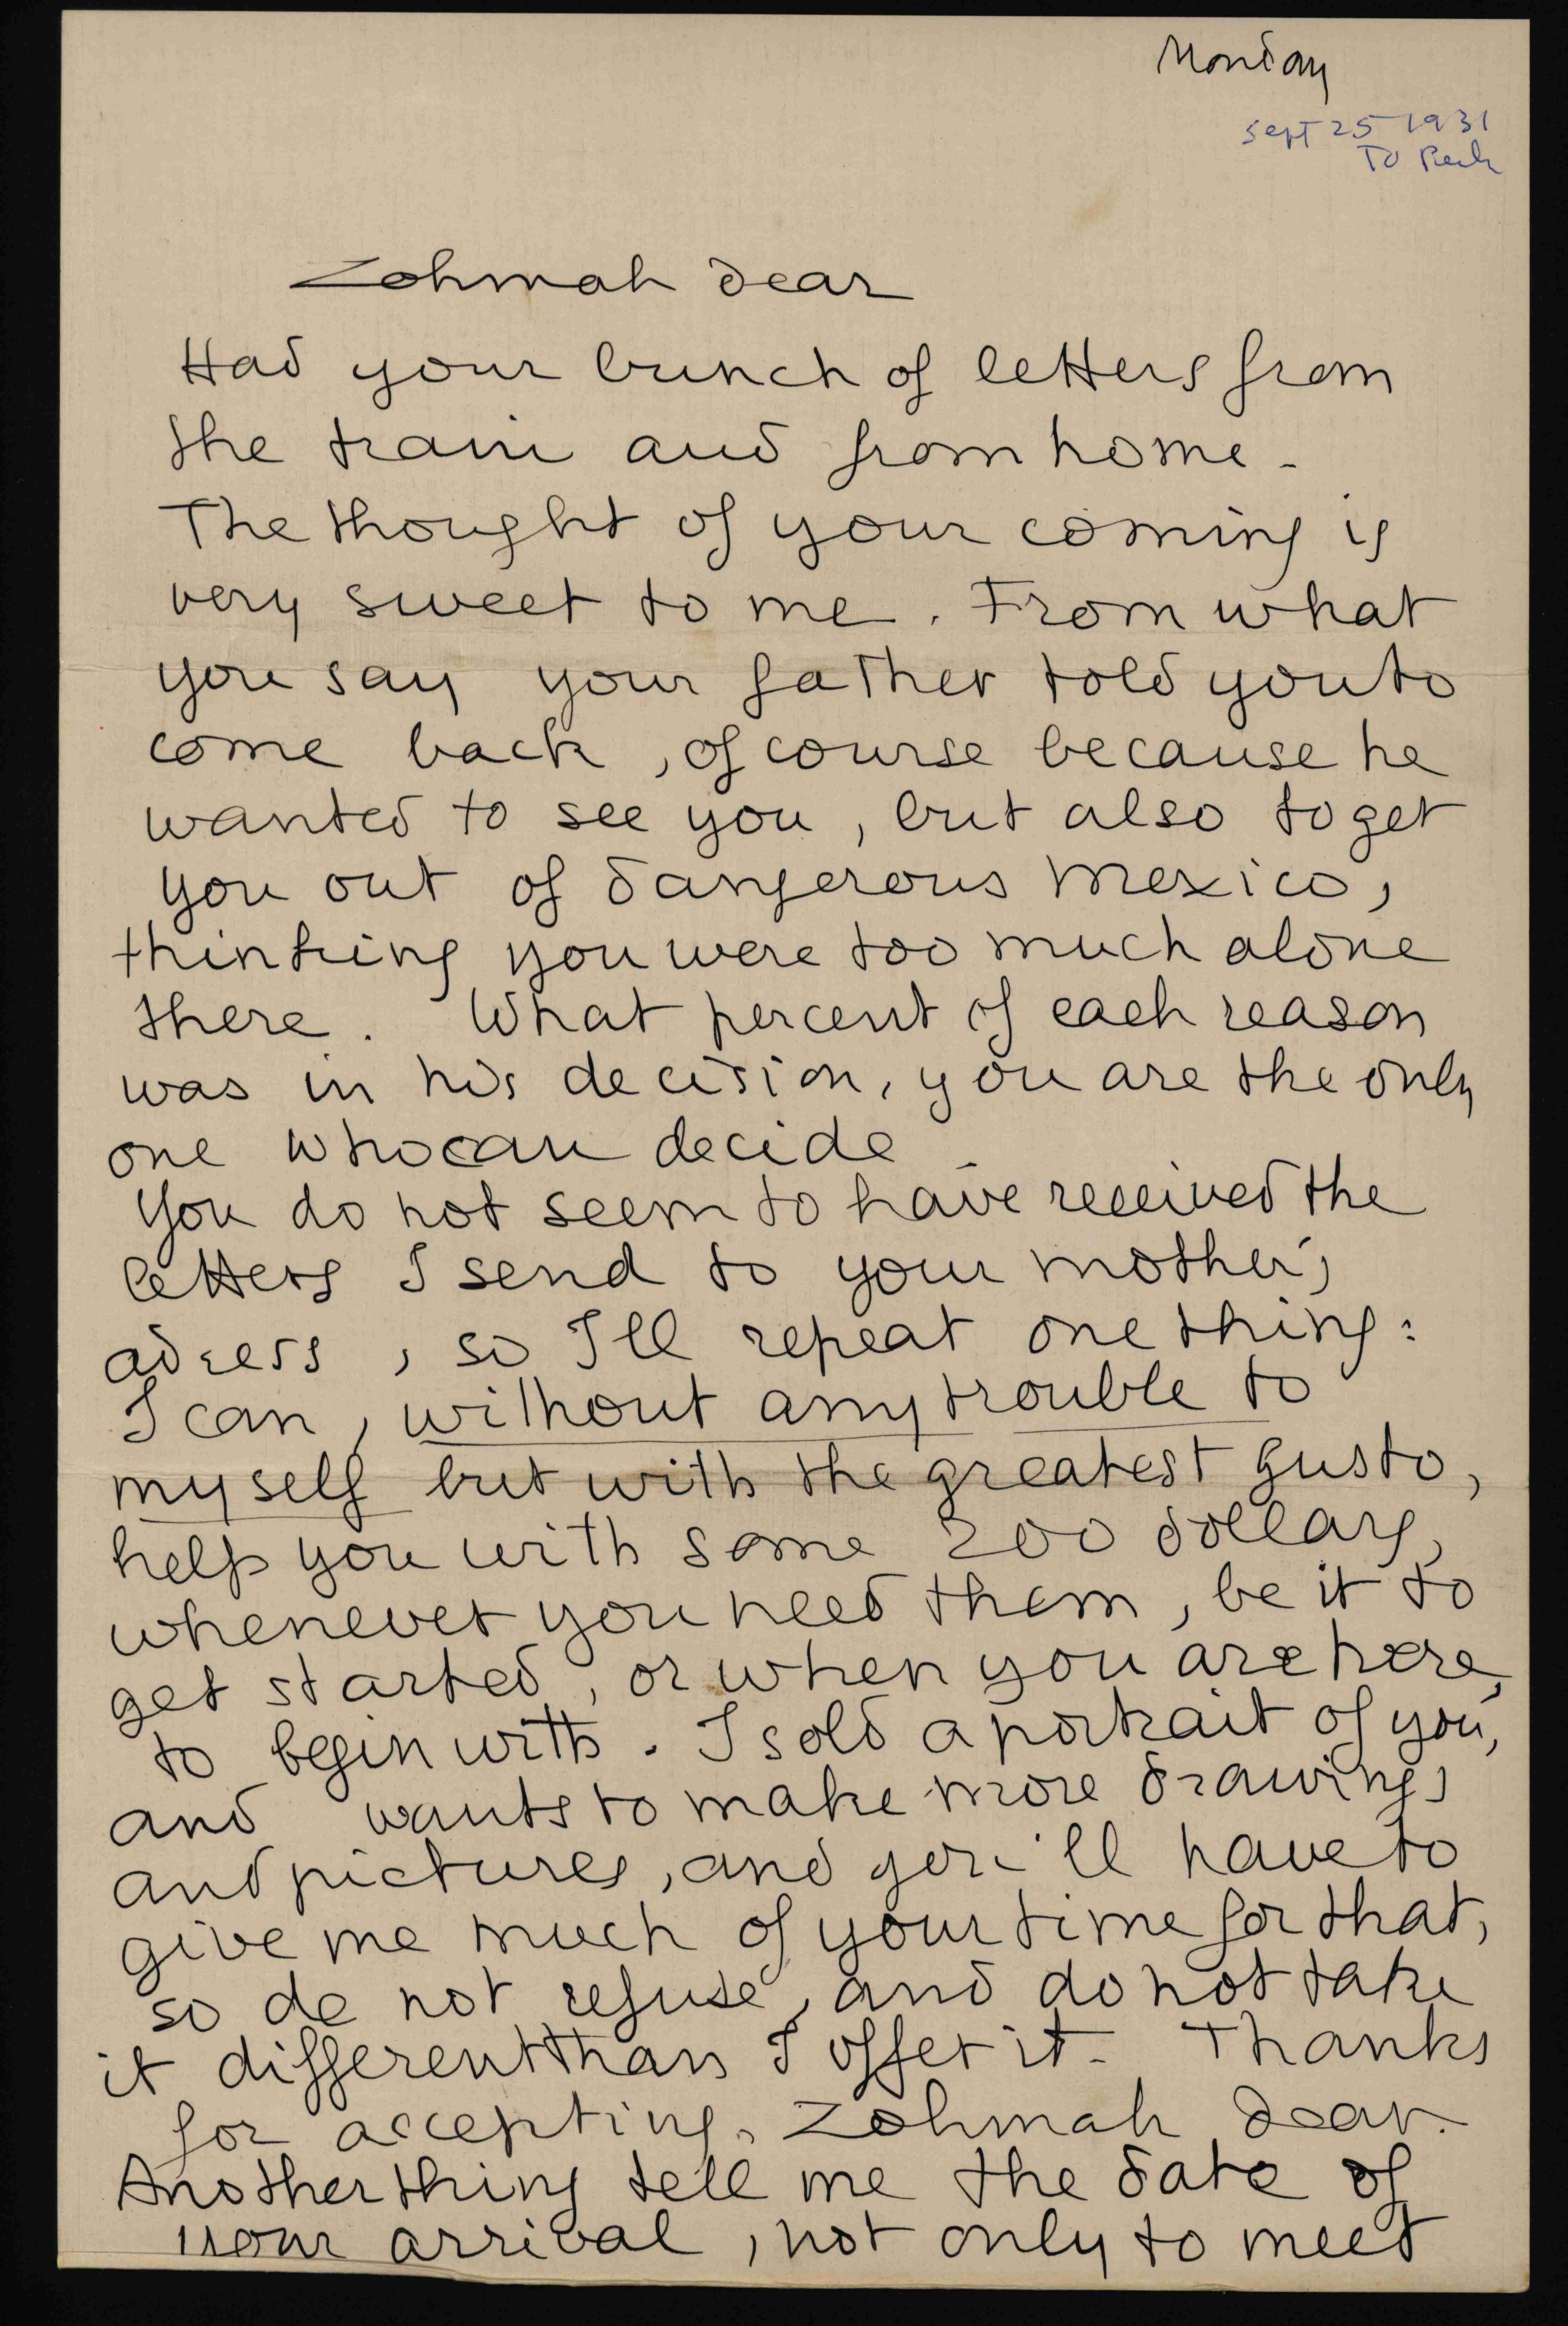 Monday
Sept 25 1931
To
Zohmah dear
Had your bunch of letters from
the train and from home.
The thought of your coming is
very sweet to me. From what
you say your father told you to
come back, of course because he
wanted to see you, but also to get
you out of dangerous Mexico,
thinking you were too much alone
there. What percent of each reason
was in his decision, you are the only
one who can decide.
You do not seem to have received the
letters I send to your mother's
adress, so I'll repeat one thing:
I can, without any trouble to
myself but with the greatest gusto,
help you with some 200 dollars,
whenever you need them, be it to
get started, or when you are here,
to begin with. I sold a portrait of you,
and wants to make more drawings
and pictures, and you'll have to
give me much of your time for that,
so de not refuse, and do not take
it different than I offer it. Thanks
for accepting, Zohmah dear.
Another thing tell me the date of
your arrival, not only to meet